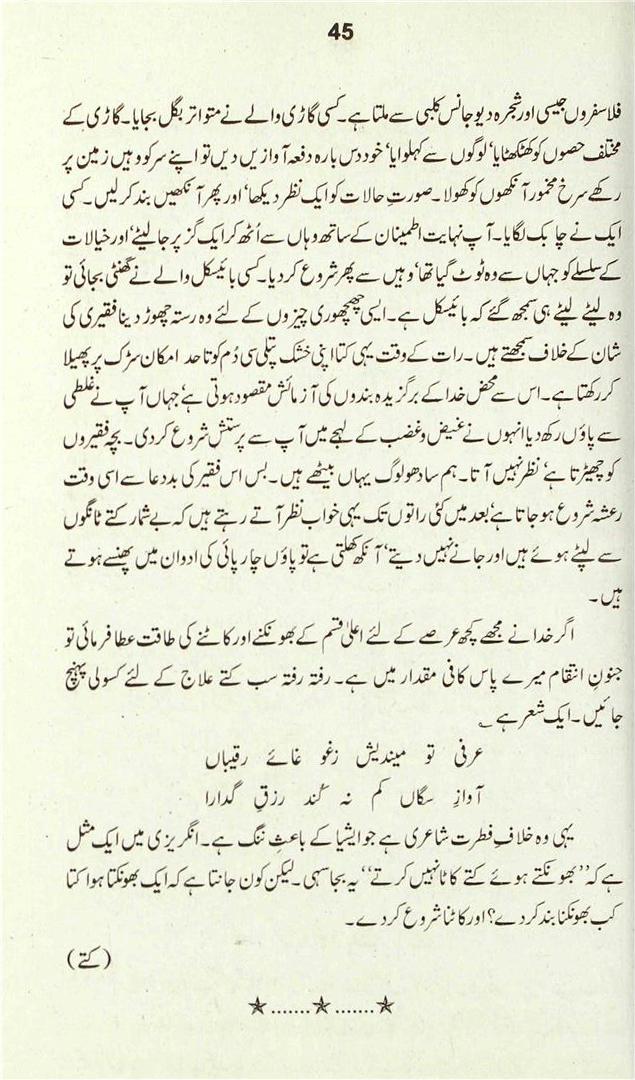 45
فلاسفروں جیسی اور شجرہ دیو جانس کلبی سے ملتا ہے۔ کسی گاڑی والے نے متواتر بگل بجایا۔ گاڑی کے
مختلف حصوں کو کھٹکھٹایا‘ لوگوں سے کہلوایا‘ خود دس بارہ دفعہ آوازیں دیں تو اپنے سر کو وہیں زمین پر
رکھے سرخ مخمور آنکھوں کو کھولا۔ صورتِ حالات کو ایک نظر دیکھا‘ اور پھر آنکھیں بند کر لیں۔ کسی
ایک نے چابک لگایا۔ آپ نہایت اطمینان کے ساتھ وہاں سے اُٹھ کر ایک گز پر جا لیٹے‘ اور خیالات
کے سلسلے کو جہاں سے وہ ٹوٹ گیا تھا‘ وہیں سے پھر شروع کر دیا۔ کسی بائیسکل والے نے گھنٹی بجائی تو
وہ لیٹے لیٹے ہی سمجھ گئے کہ بائیسکل ہے۔ ایسی چھچھوری چیزوں کے لئے وہ رستہ چھوڑ دینا فقیری کی
شان کے خلاف سمجھتے ہیں۔ رات کے وقت یہی کتا اپنی خشک پتلی سی دُم کو تا حد امکان سڑک پر پھیلا
کر رکھتا ہے۔ اس سے محض خدا کے برگزیدہ بندوں کی آزمائش مقصود ہوتی ہے‘ جہاں آپ نے غلطی
سے پاؤں رکھ دیا انہوں نے غیض و غضب کے لہجے میں آپ سے پرستش شروع کر دی۔ بچہ فقیروں
کو چھیڑتا ہے‘ نظر نہیں آتا۔ ہم سادھو لوگ یہاں بیٹھے ہیں۔ بس اس فقیر کی بددعا سے اسی وقت
رعشہ شروع ہو جاتا ہے‘ بعد میں کئی راتوں تک یہی خواب نظر آتے رہتے ہیں کہ بے شمار کتے ٹانگوں
سے لپٹے ہوئے ہیں اور جانے نہیں دیتے‘ آنکھ کھلتی ہے تو پاؤں چارپائی کی ادوان میں پھنسے ہوتے
ہیں۔
اگر خدا نے مجھے کچھ عرصے کے لئے اعلیٰ قسم کے بھونکنے اور کاٹنے کی طاقت عطا فرمائی تو
جنونِ انتقام میرے پاس کافی مقدار میں ہے۔ رفتہ رفتہ سب کتے علاج کے لئے کسولی پہنچ
جائیں۔ ایک شعر ہے ؎
عرفی تو میندیش زغو غائے رقیباں
آوازِ سگاں کم نہ کُند رزقِ گدارا
یہی وہ خلافِ فطرت شاعری ہے جو ایشیا کے باعثِ ننگ ہے۔ انگریزی میں ایک مثل
ہے کہ ’’بھونکتے ہوئے کتے کاٹا نہیں کرتے‘‘ یہ بجا سہی۔ لیکن کون جانتا ہے کہ ایک بھونکتا ہوا کتا
کب بھونکنا بند کر دے؟ اور کاٹنا شروع کر دے۔
(کتے)
★.......★.......★